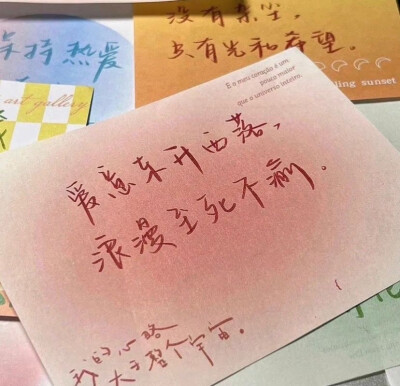 没有杂尘,
只有光和希望。
保持热爱
ling sunset
art gallery
E o meu coração é um
pouco maior
que o universo inteiro.
爱意东升西落,
浪漫至死不渝。
我的心略
大于整个宇宙。